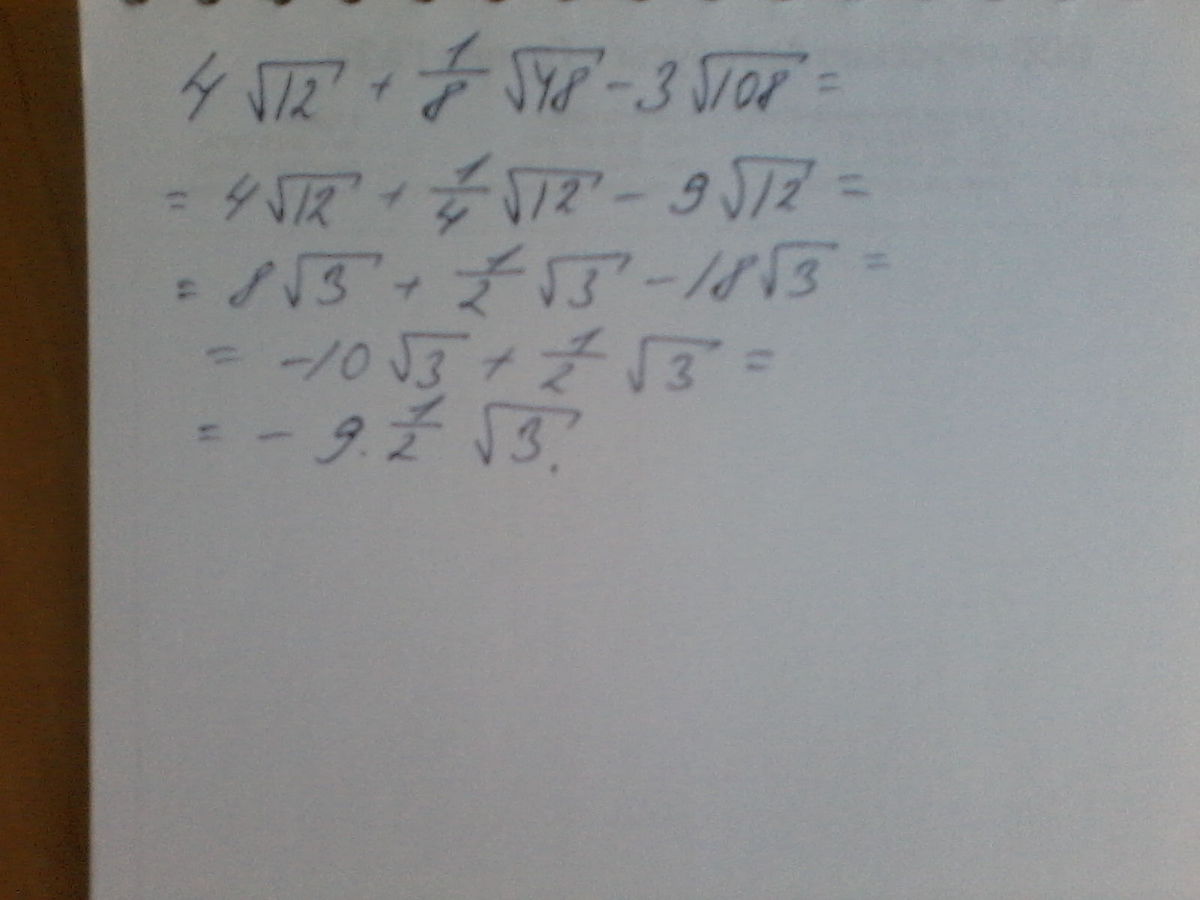 4 √12 + 1/8 √48 - 3 √108 =
= 4 √12 + 1/4 √12 - 9 √12 =
= 8 √3 + 1/2 √3 - 18 √3 =
= -10 √3 + 1/2 √3 =
= - 9. 1/2 √3.